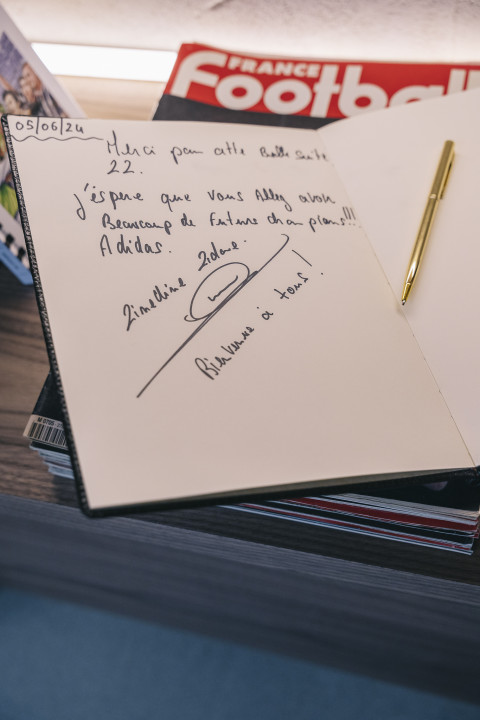 FRANCE
Football
05/06/24
Merci pour cette Belle Suite
22.
j'éspère que vous Allez avoir
Beaucoup de Futurs champions!!!
Adidas.
Zinedine Zidane.
Bienvenue à tous!